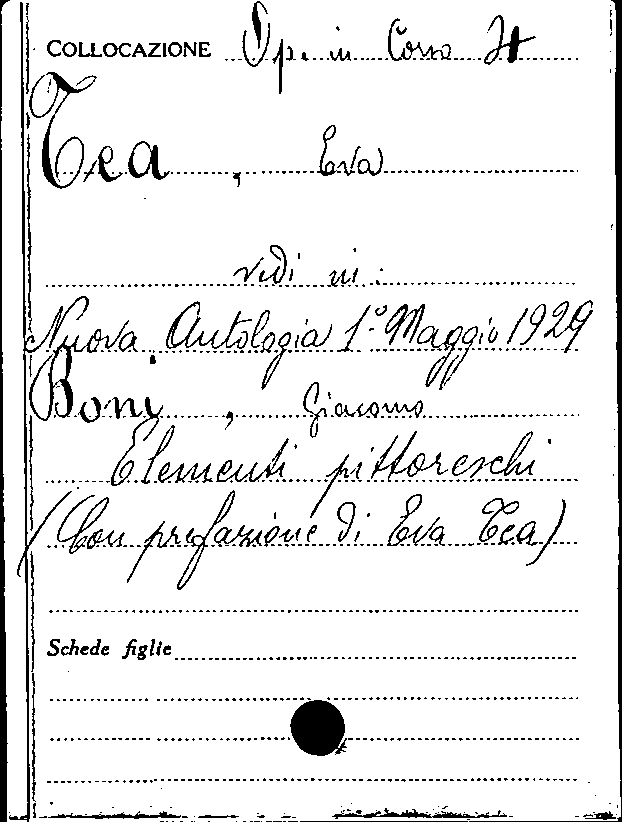 COLLOCAZIONE Op. in Corso It
Tea, Eva
vedi in:
Nuova Antologia 1° Maggio 1929
Boni, Giacomo
Elementi pittoreschi
(Con prefazione di Eva Tea)
Schede figlie